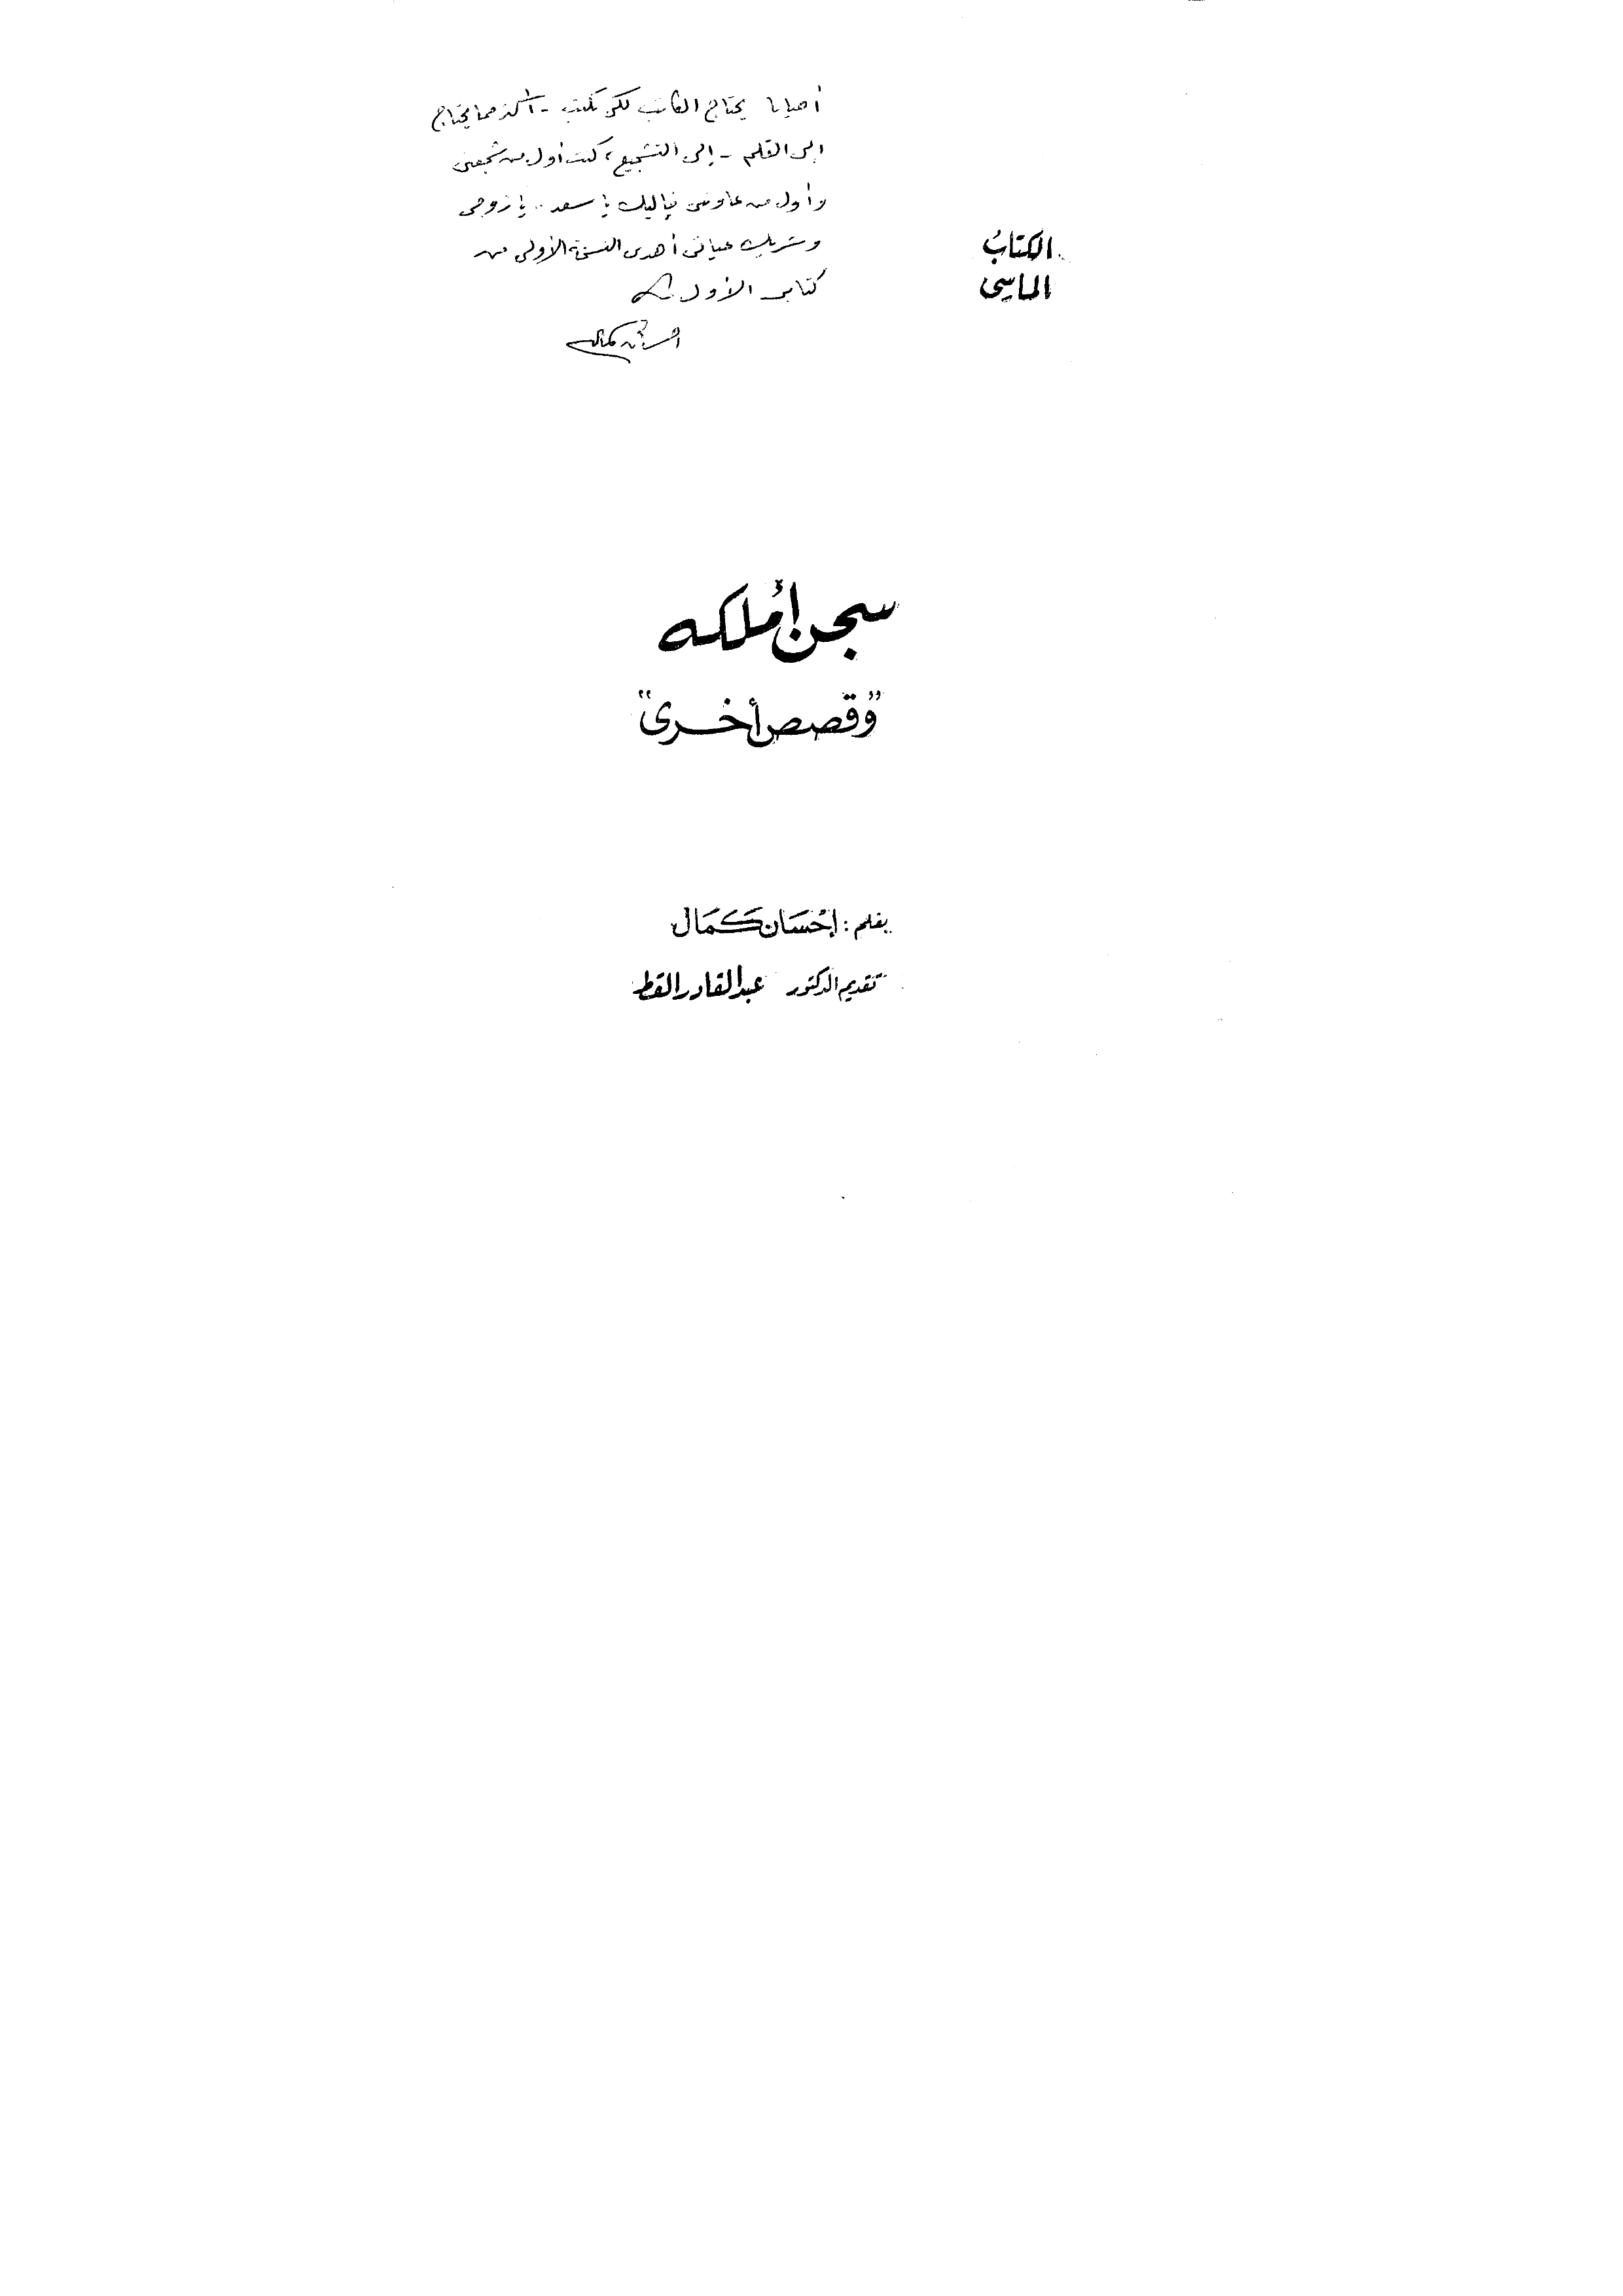 أحيانا يحتاج الكاتب لكى يكتب - أكثر مما يحتاج
إلى القلم - إلى التشجيع، كنت أول من شجعنى
وأول من عاوننى فإليك يا سعد.. يا زوجى
وشريك حياتى أهدى النسخة الأولى من
كتابى الأول
إحسان كمال
الكتاب
الماسى
سجن أملكه
"وقصص أخرى"
بقلم: إحسان كمال
تقديم الدكتور عبد القادر القط